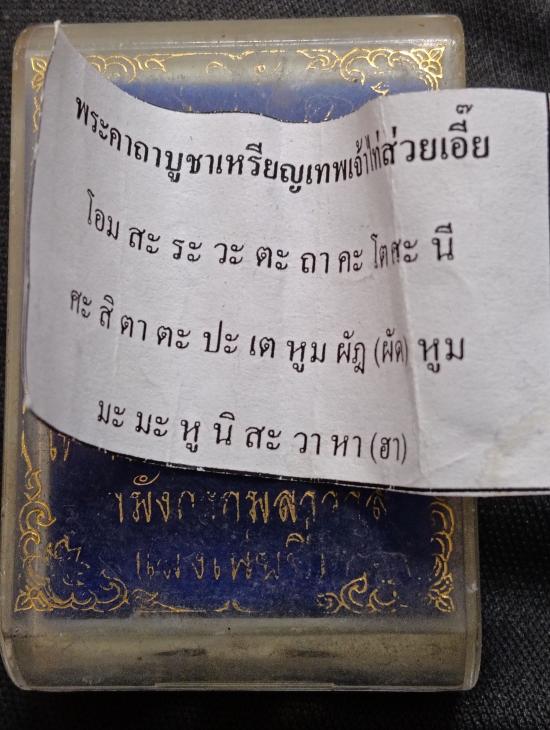 พระคาถาบูชาเหรียญเทพเจ้าไท่ส่วยเอี๊ย
โอม สะ ระ วะ ตะ ถา คะ โตศะ นี
ศะ สิ ตา ตะ ปะ เต หูม ผัฎ (ผัด) หูม
มะ มะ หู นิ สะ วา หา (ฮา)